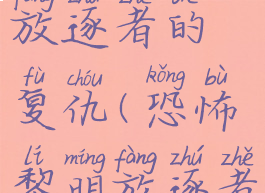 放逐者的
fù chóu kǒng bù
复仇(恐怖
lí míng fàng zhú zhě
黎明放逐者